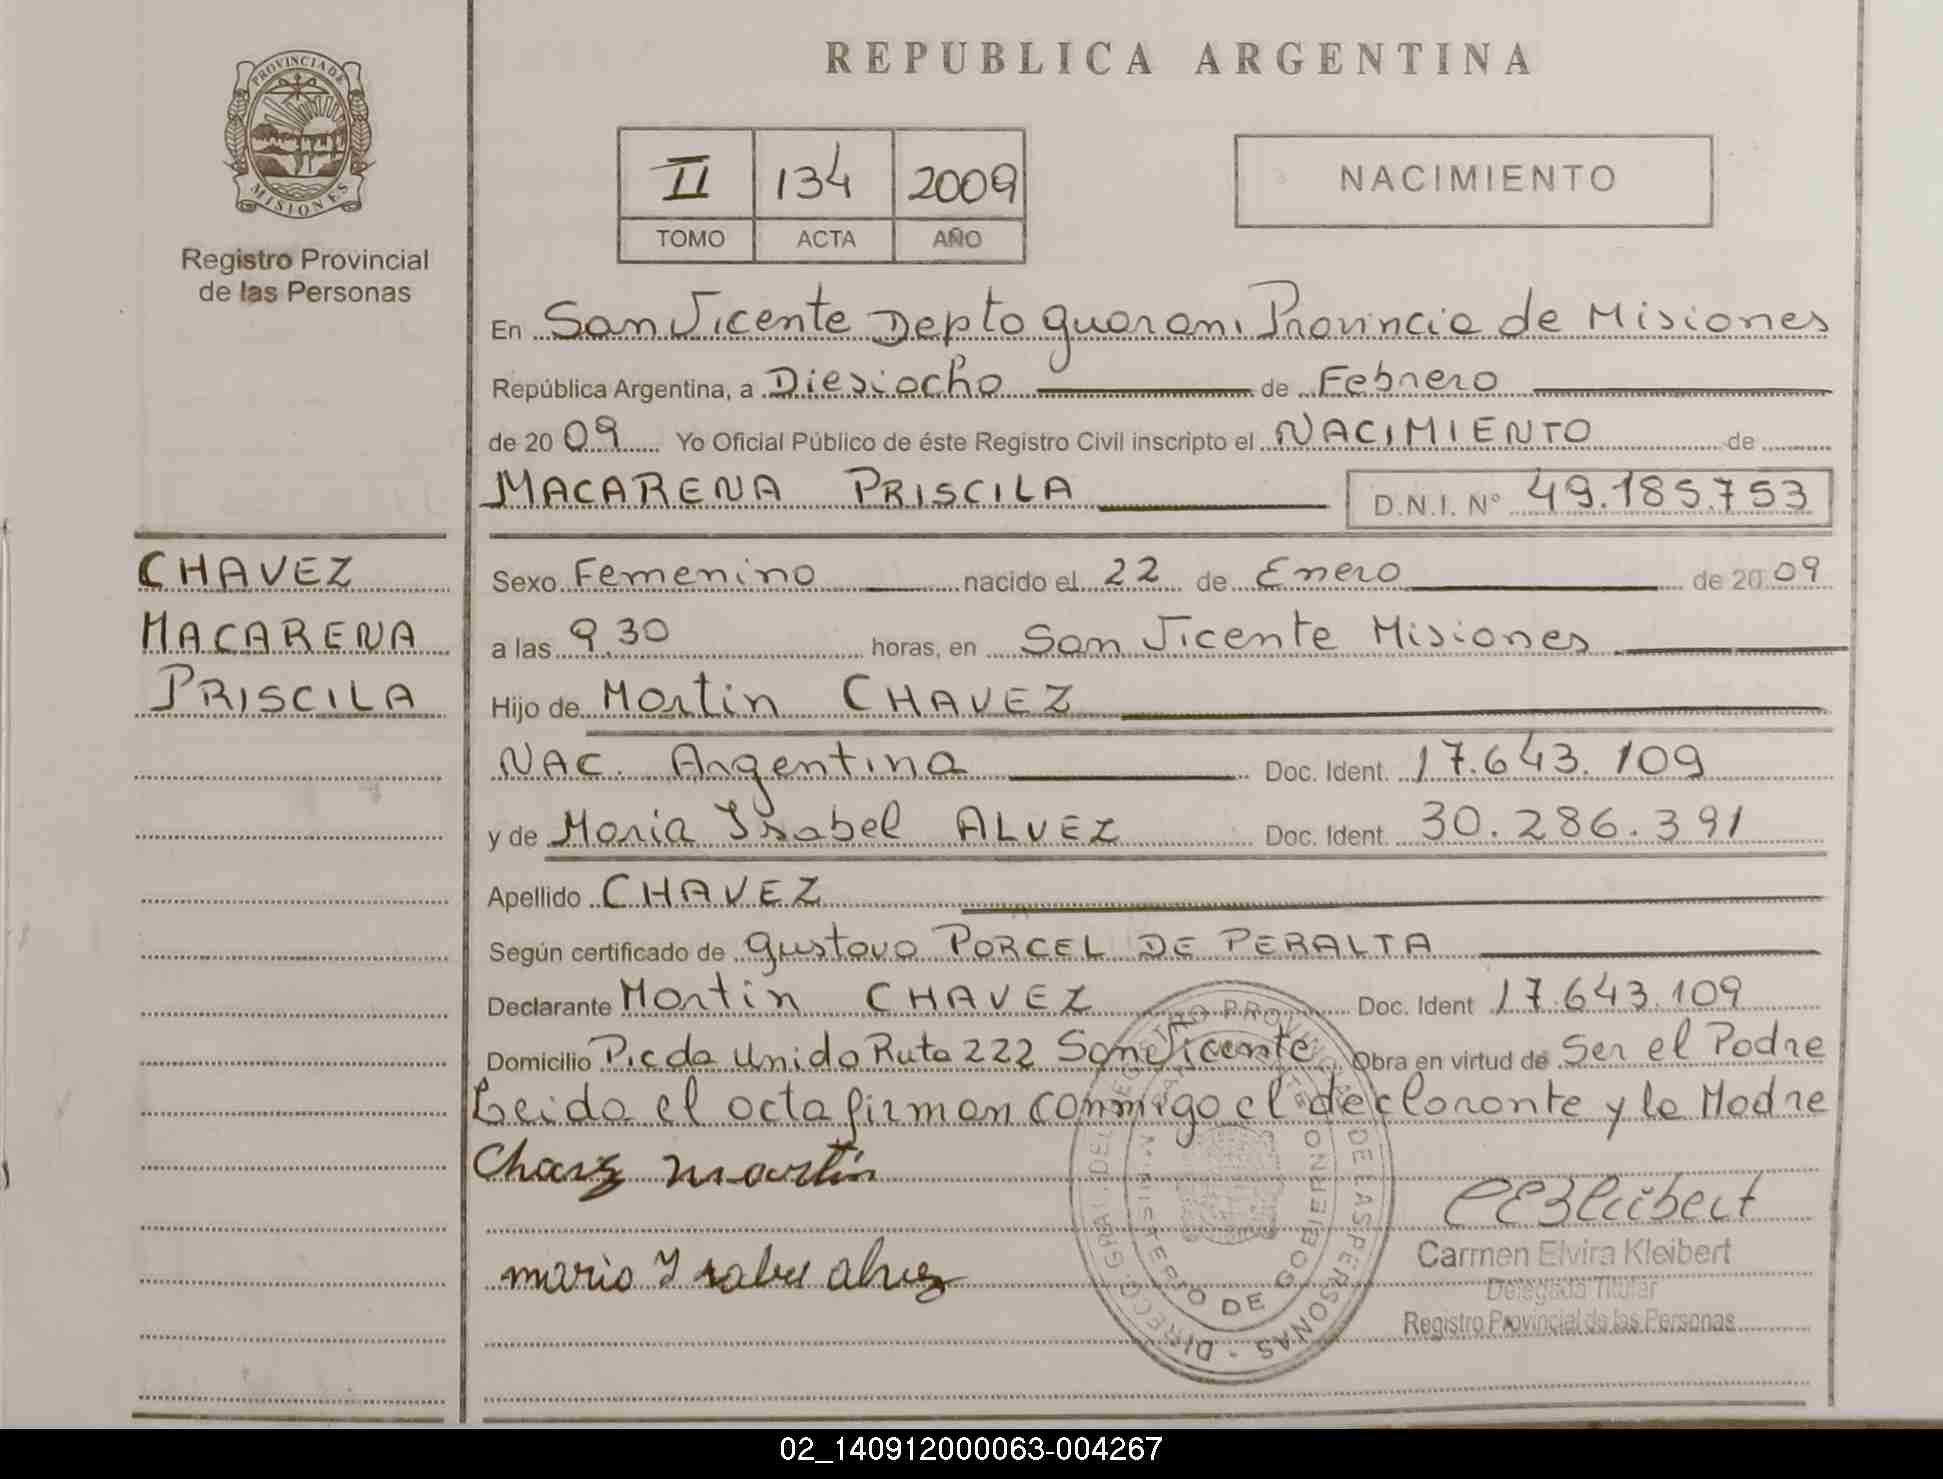 REPUBLICA ARGENTINA
PROVINCIA DE
MISIONES
Registro Provincial
de las Personas
II 134 2009
TOMO ACTA AÑO
NACIMIENTO
En San Vicente Depto Guarani Provincia de Misiones
República Argentina, a Diesiocho de Febrero
de 2009 Yo Oficial Público de éste Registro Civil inscripto el NACIMIENTO de
MACARENA PRISCILA D.N.I. Nº 49.185.753
CHAVEZ
MACARENA
PRISCILA
Sexo Femenino nacido el 22 de Enero de 2009
a las 9.30 horas, en San Vicente Misiones
Hijo de Martin CHAVEZ
NAC. Argentina Doc. Ident. 17.643.109
y de Maria Ysabel ALVEZ Doc. Ident. 30.286.391
Apellido CHAVEZ
Según certificado de Gustavo PORCEL DE PERALTA
Declarante Martin CHAVEZ Doc. Ident 17.643.109
Domicilio Picda Unida Ruta 222 San Vicente Obra en virtud de Ser el Padre
Leida el acta firman conmigo el declarante y la Madre
Chavez martin
maria Ysabel alvez
DIRECC. GRAL. DEL REGISTRO PROVINCIAL DE LAS PERSONAS
MINISTERIO DE GOBIERNO
Carmen Elvira Kleibert
Delegada Titular
Registro Provincial de las Personas
02_140912000063-004267